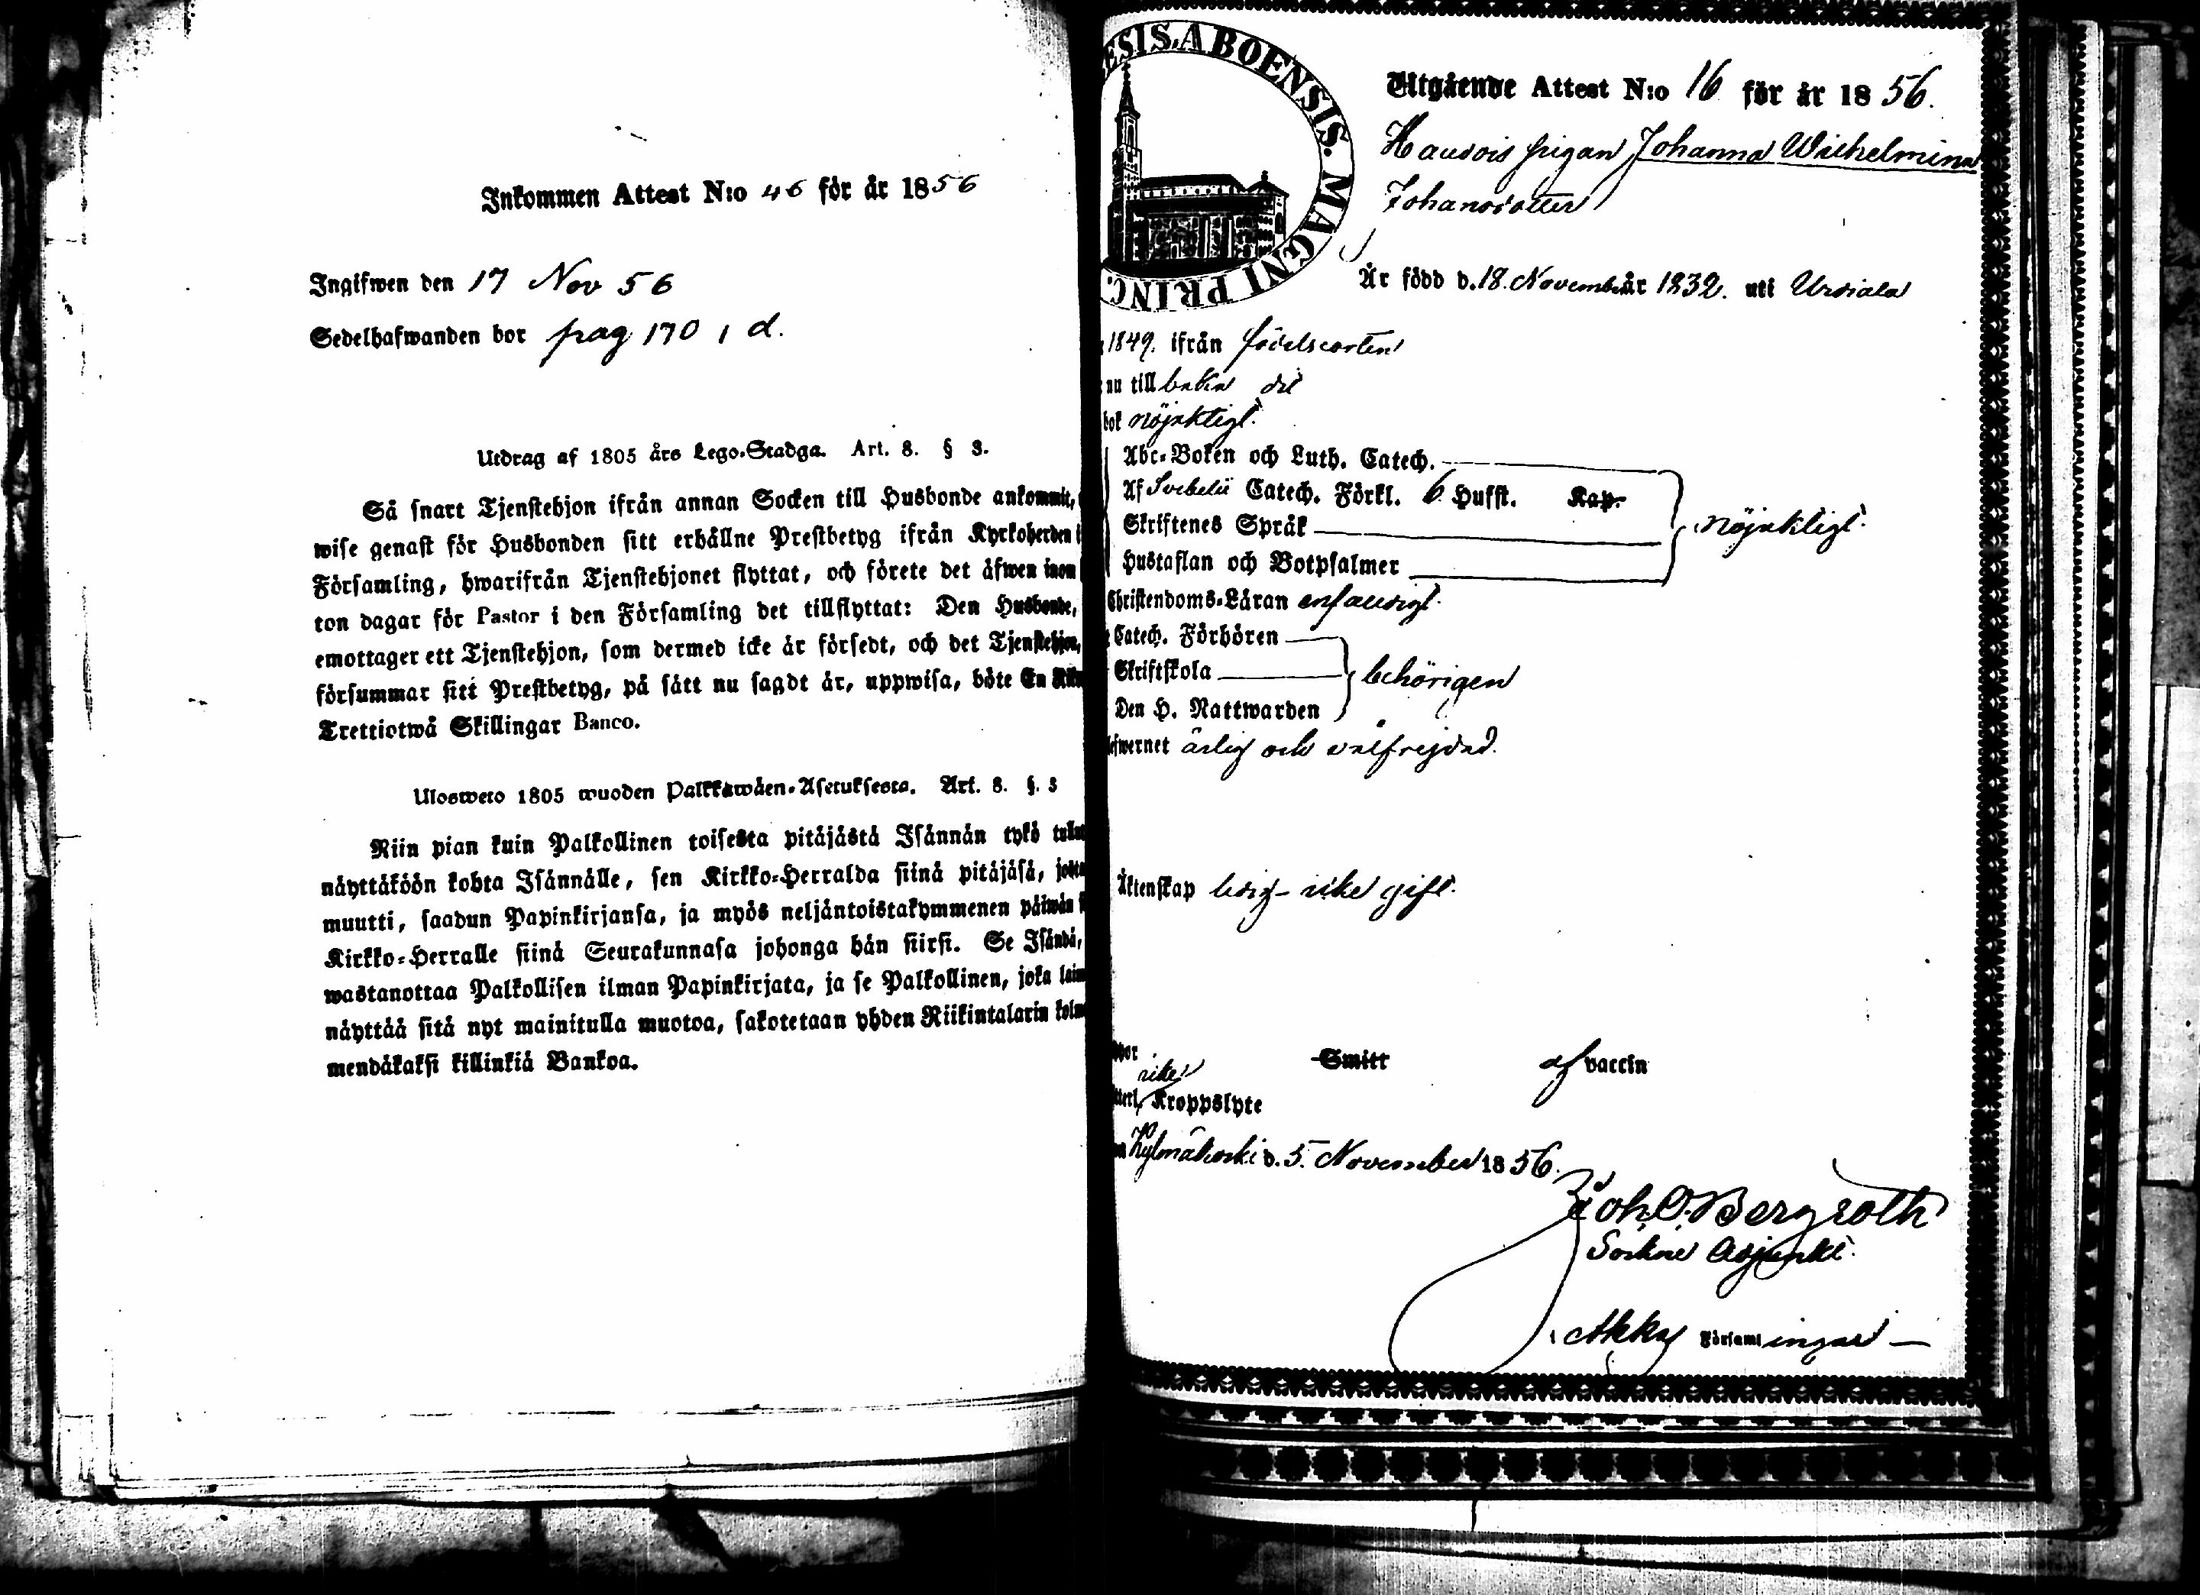 Inkommen Attest N:o 46 för år 1856
Ingifwen den 17 Nov 56
Sedelhafwanden bor pag 170, d.
Utdrag af 1805 års Lego-Stadga. Art. 8. § 3.
Så snart Tjenstehjon ifrån annan Socken till Husbonde ankommit,
wise genast för Husbonden sitt erhållne Prestbetyg ifrån Kyrkoherden i
Församling, hwarifrån Tjenstehjonet flyttat, och förete det äfwen inom
ton dagar för Pastor i den Församling det tillflyttat: Den Husbonde,
emottager ett Tjenstehjon, som dermed icke är försedt, och det Tjenstehjon,
försummar sitt Prestbetyg, på sätt nu sagdt är, uppwisa, böte En
Trettiotwå Skillingar Banco.
Ulosweto 1805 wuoden Palkkawäen-Asetuksesta. Art. 8. §. 3
Niin pian kuin Palkollinen toisesta pitäjästä Isännän tykö
näyttäköön kohta Isännälle, sen Kirkko-Herralda siinä pitäjäsä,
muutti, saadun Papinkirjansa, ja myös neljäntoistakymmenen päiwän
Kirkko-Herralle siinä Seurakunnasa johonga hän siirsi. Se Isändä,
wastanottaa Palkollisen ilman Papinkirjata, ja se Palkollinen, joka
näyttää sitä nyt mainitulla muotoa, sakotetaan yhden Riikintalarin
mendäkaksi killinkiä Bankoa.
ESIS. ABOENSIS. MAGNI PRINC.
Utgående Attest N:o 16 för år 1856.
pigan Johanna Wilhelmina
Johansdotter
Är född d. 18. November år 1832. uti Urdiala
1849. ifrån födelseorten
nu till baka dit
bok nöjaktigt.
Abc-Boken och Luth. Catech.
Af Svebelii Catech. Förkl. 6 Hufst. Kap.
Skriftenes Språk nöjaktigt.
Hustaflan och Botpsalmer
Christendoms-Läran enfaldigt.
Catech. Förhören
Skriftskola behörigen
Den H. Nattwarden
efwernet ärlig och välfrejdad.
Äktenskap ledig – icke gift.
Smitt af vaccin
icke
Kroppslyte
Kylmäkoski d. 5. November 1856.
Joh. O. Bergroth
Sockne Adjunkt.
Akka Församlingar —